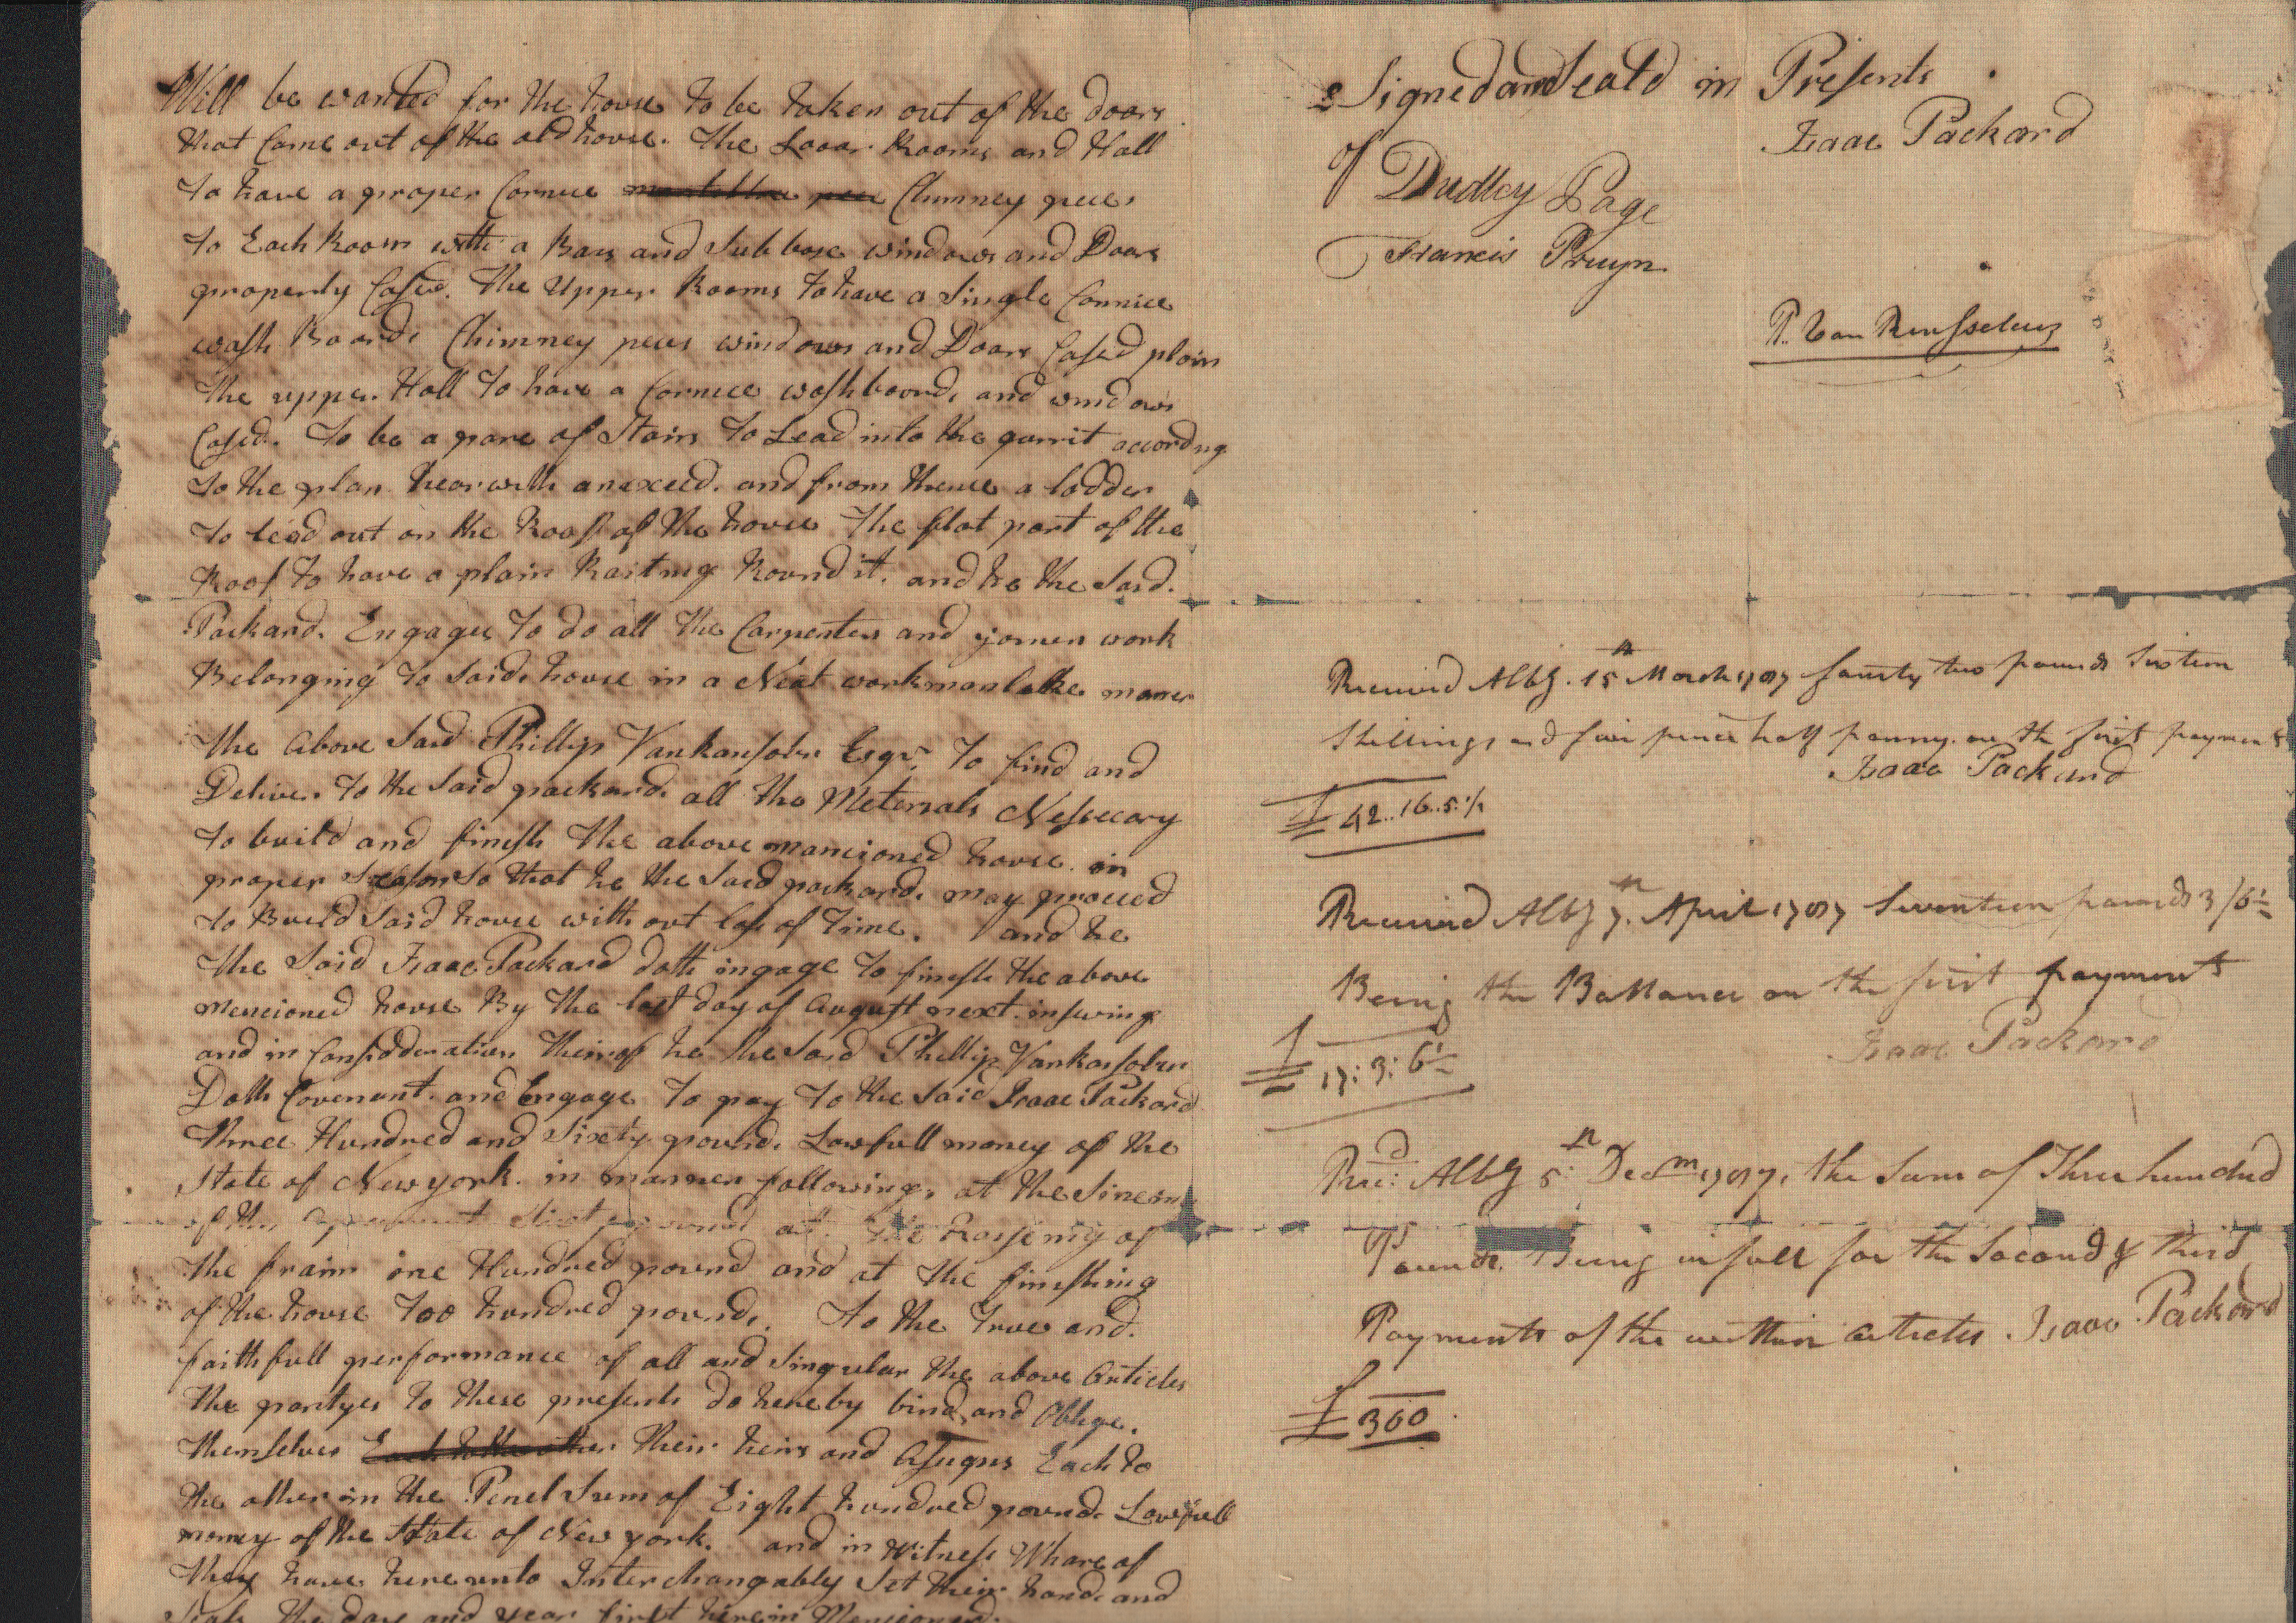 Will be wanted for the house to be taken out of the doors
that Come out of the old house. The Looar Rooms and Hall
to have a proper Cornice Chimney pieces
to Each Room with a Bass and Subbase windows and Doors
properly Cased. The Upper Rooms to have a Single Cornice
wash Boards Chimney peces windows and Doors Cased plain
the upper Hall to have a Cornice washboards and windows
Cased. To be a pare of Stairs to Lead into the garrit according
to the plan hearwith anexeed. and from thence a ladder
to lead out on the Roof of the house the flat part of the
Roof to have a plain Railing Round it. and he the Said.
Packard. Engages to do all the Carpenters and joiners work
Belonging to Said house in a Neat workmanlike maner
the above Said Phillip Vanransolar Esqr. to find and
Deliver to the Said packard. all the Meterials Nessecary
to build and finish the above mancioned house in
proper Season So that he the Said packard. may proceed
to Build Said house with out loss of Time. and he
the Said Isaac Packard doth ingage to finish the above
mencioned house By the last day of August next insuing
and in Considderation theirof he the Said Phillip Vanransolar
Doth Covenant and Engage to pay to the Said Isaac Packard
three Hundred and Sixety pound. Lawfull money of the
State of New york. in manner following, at the Sineing
of this agreement Sixty pound at the Raiseing of
the fraim one Hundred pound and at the finishing
of the house too hundred pound. to the True and
faithfull performance of all and Singular the above Articles
the partyes to these presents do hereby bind and Oblige.
themselves Each to the other their heirs and Asigns Each to
the other in the Penel Sum of Eight hundred pound. Lawfull
money of the State of New york. and in Witness Whareof
they have hereunto Interchangably Set their hands and
Seals the day and year first herein Mencioned.
Signed and Seald in Presents
of Isaac Packard
Dudley Page
Francis Pruyn
P. Van Rensselaer
Received Alby. 15th March 1787 fourty two pounds Sixteen
Shillings and five pence half penny on the first payment
Isaac Packard
£42..16..5½
Received Alby 7th April 1787 Seventeen pounds 3/6½
Being the Ballance on the first payment
Isaac Packard
£17:3:6½
Recd: Alby 5th Decm 1787, the Sum of Three hundred
Pounds Being in full for the Second & third
Payments of the within articles Isaac Packard
£300